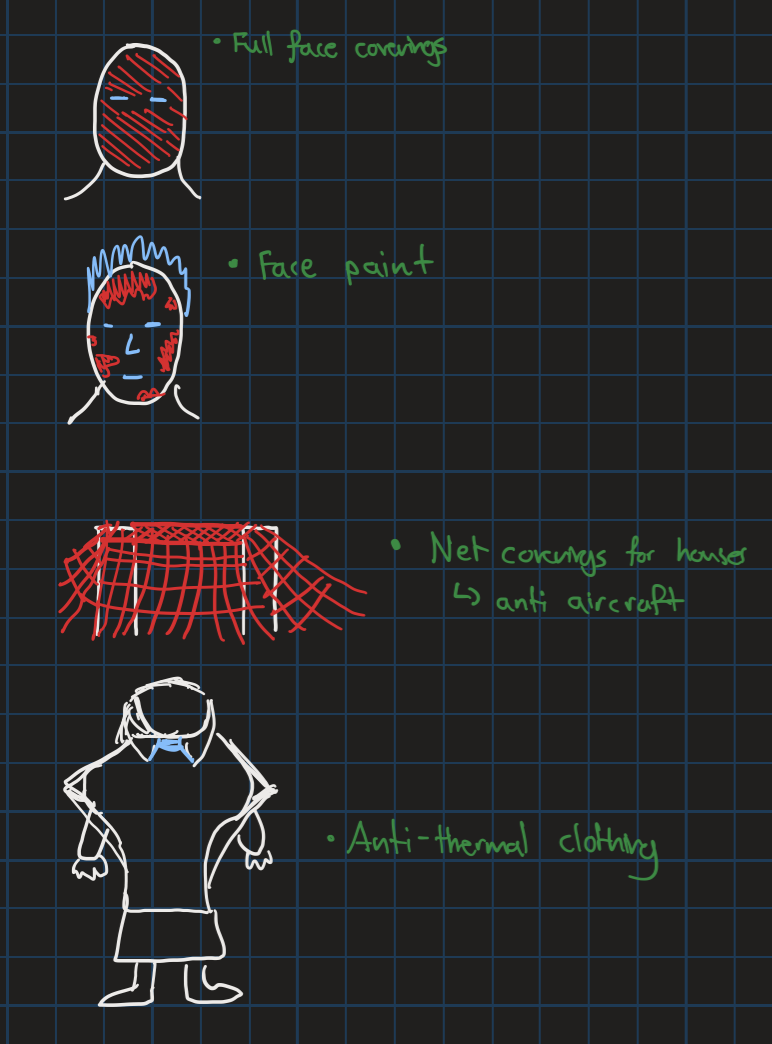 • Full face coverings
• Face paint
• Net coverings for houses
↳ anti aircraft
• Anti-thermal clothing